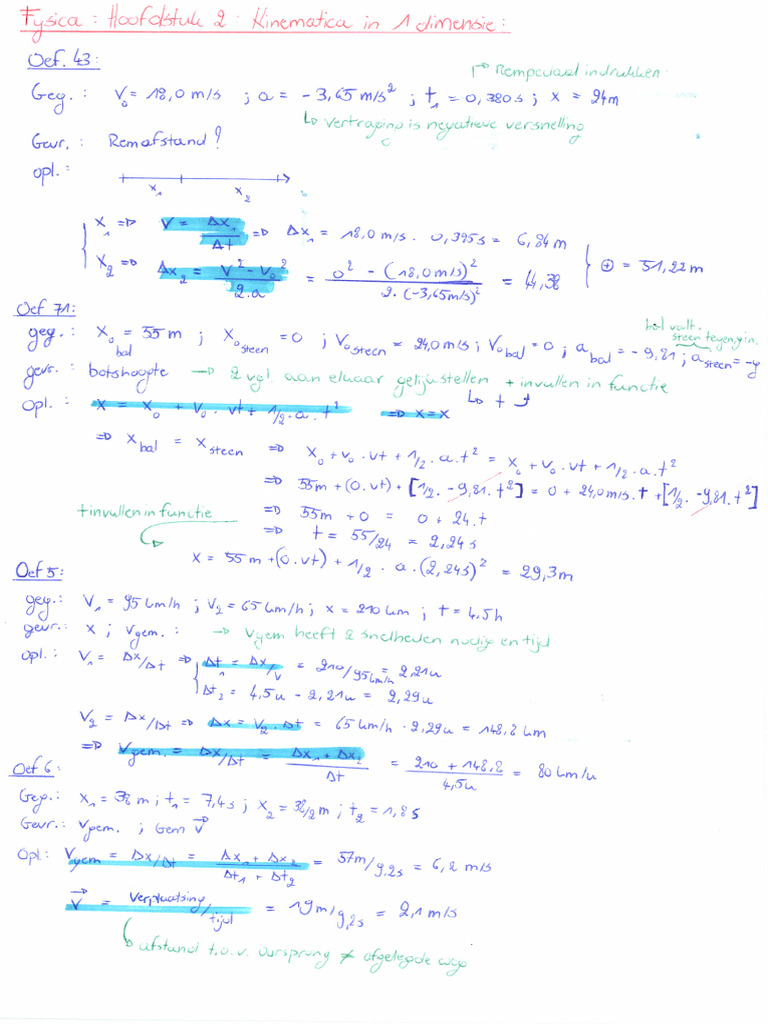 Fysica : Hoofdstuk 2 : Kinematica in 1 dimensie :
Oef. 43 :
↱ Rempedaal indrukken
Geg. : V₀ = 18,0 m/s ; a = - 3,65 m/s² ; t₁ = 0,380 s ; x = 24m
↳ vertraging is negatieve versnelling
Gevr. : Remafstand ?
opl. :
x₁ x₂
x₁ => V = Δx₁/Δt => Δx₁ = 18,0 m/s . 0,395s = 6,84 m
x₂ => Δx₂ = V² - V₀² / 2.a = 0² - (18,0 m/s)² / 2. (-3,65m/s)² = 44,38
⊕ = 51,22 m
Oef 71 :
bal valt. steen tegeny in.
geg. : x₀ bal = 55 m ; x₀ steen = 0 ; V₀ steen = 24,0 m/s ; V₀ bal = 0 ; a bal = - 9,81 ; a steen = -g
gevr. : botshoogte → 2 vgl. aan elkaar gelijkstellen + invullen in functie
↳ t
Opl. : x = x₀ + V₀ . vt + 1/2 . a . t² => x = x
=> x bal = x steen => x₀ + v₀ . vt + 1/2 . a . t² = x₀ + v₀ . vt + 1/2 . a . t²
=> 55m + (0 . vt) + [1/2 . -9,81 . t²] = 0 + 24,0 m/s . t + [1/2 . -9,81 . t²]
=> 55m + 0 = 0 + 24 . t
+ invullen in functie
=> t = 55/24 = 2,24 s
x = 55m + (0 . vt) + 1/2 . a . (2,24s)² = 29,3 m
Oef 5 :
geg. : V₁ = 95 km/h ; V₂ = 65 km/h ; x = 210 km ; t = 4,5 h
gevr. : x ; Vgem. : → Vgem heeft 2 snelheden nodig en tijd
opl. : V₁ = Δx/Δt => Δt₁ = Δx/V = 210/95km/h = 2,21u
Δt₂ = 4,5u - 2,21u = 2,29u
V₂ = Δx/Δt => Δx = V₂ . Δt = 65 km/h . 2,29u = 148,8 km
=> Vgem. = Δx/Δt = Δx₁ + Δx₂ / Δt = 210 + 148,8 / 4,5u = 80 km/u
Oef 6 :
Geg. : x₁ = 38 m ; t₁ = 7,4s ; x₂ = 38/2 m ; t₂ = 1,8s
Gevr. : Vgem. ; Gem V⃗
Opl : Vgem = Δx/Δt = Δx₁ + Δx₂ / Δt₁ + Δt₂ = 57m/9,2s = 6,2 m/s
V⃗ = verplaatsing/tijd = 19m/9,2s = 2,1 m/s
↳ afstand t.o.v. oorsprong ≠ afgelegde weg